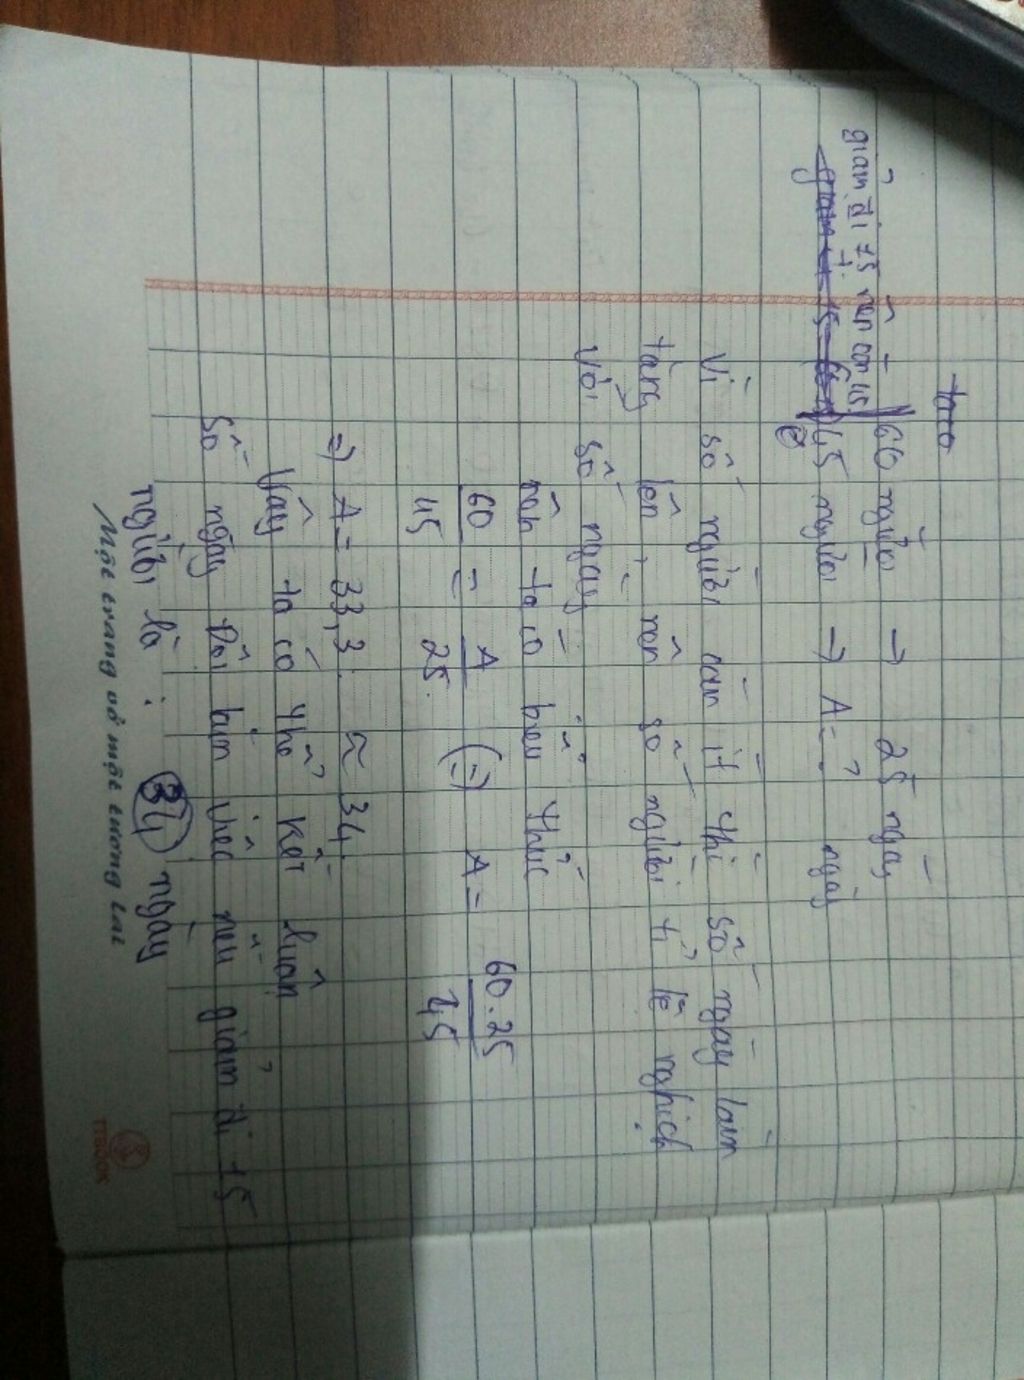 taco
60 người → 25 ngày
giảm đi 15 nên còn 45
45 người → A = ? ngày
Vì số người càng ít thì số ngày làm
tăng lên, nên số người tỉ lệ nghịch
với số ngày
nên ta có biểu thức
60/45 = A/25 (=) A = 60.25/45
=) A = 33,3. ≈ 34.
Vậy ta có thể kết luận
Số ngày đội làm việc nếu giảm đi 15
người là : 34 ngày
Một trang vở một tương lai
TTBOOK